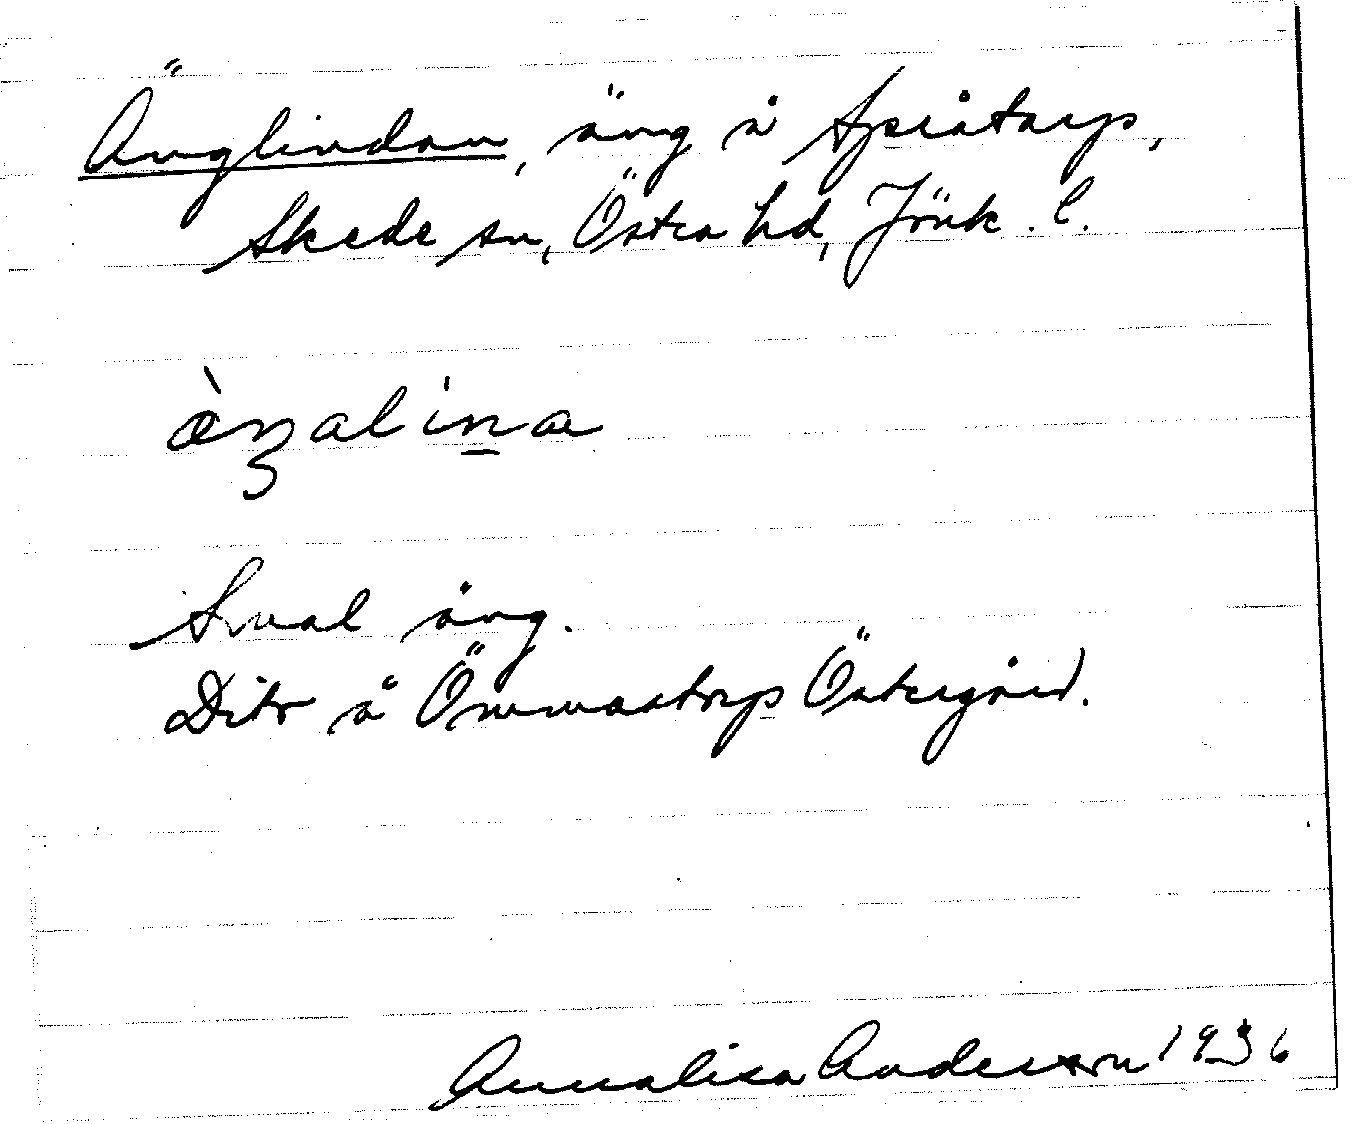 Änglindan, äng å Språtorp,
Skede sn, Östra hd, Jönk. l.
æ̀ŋalina
Smal äng.
Dito å Ömmastorp Östergård.
Annalisa Anderson 1936